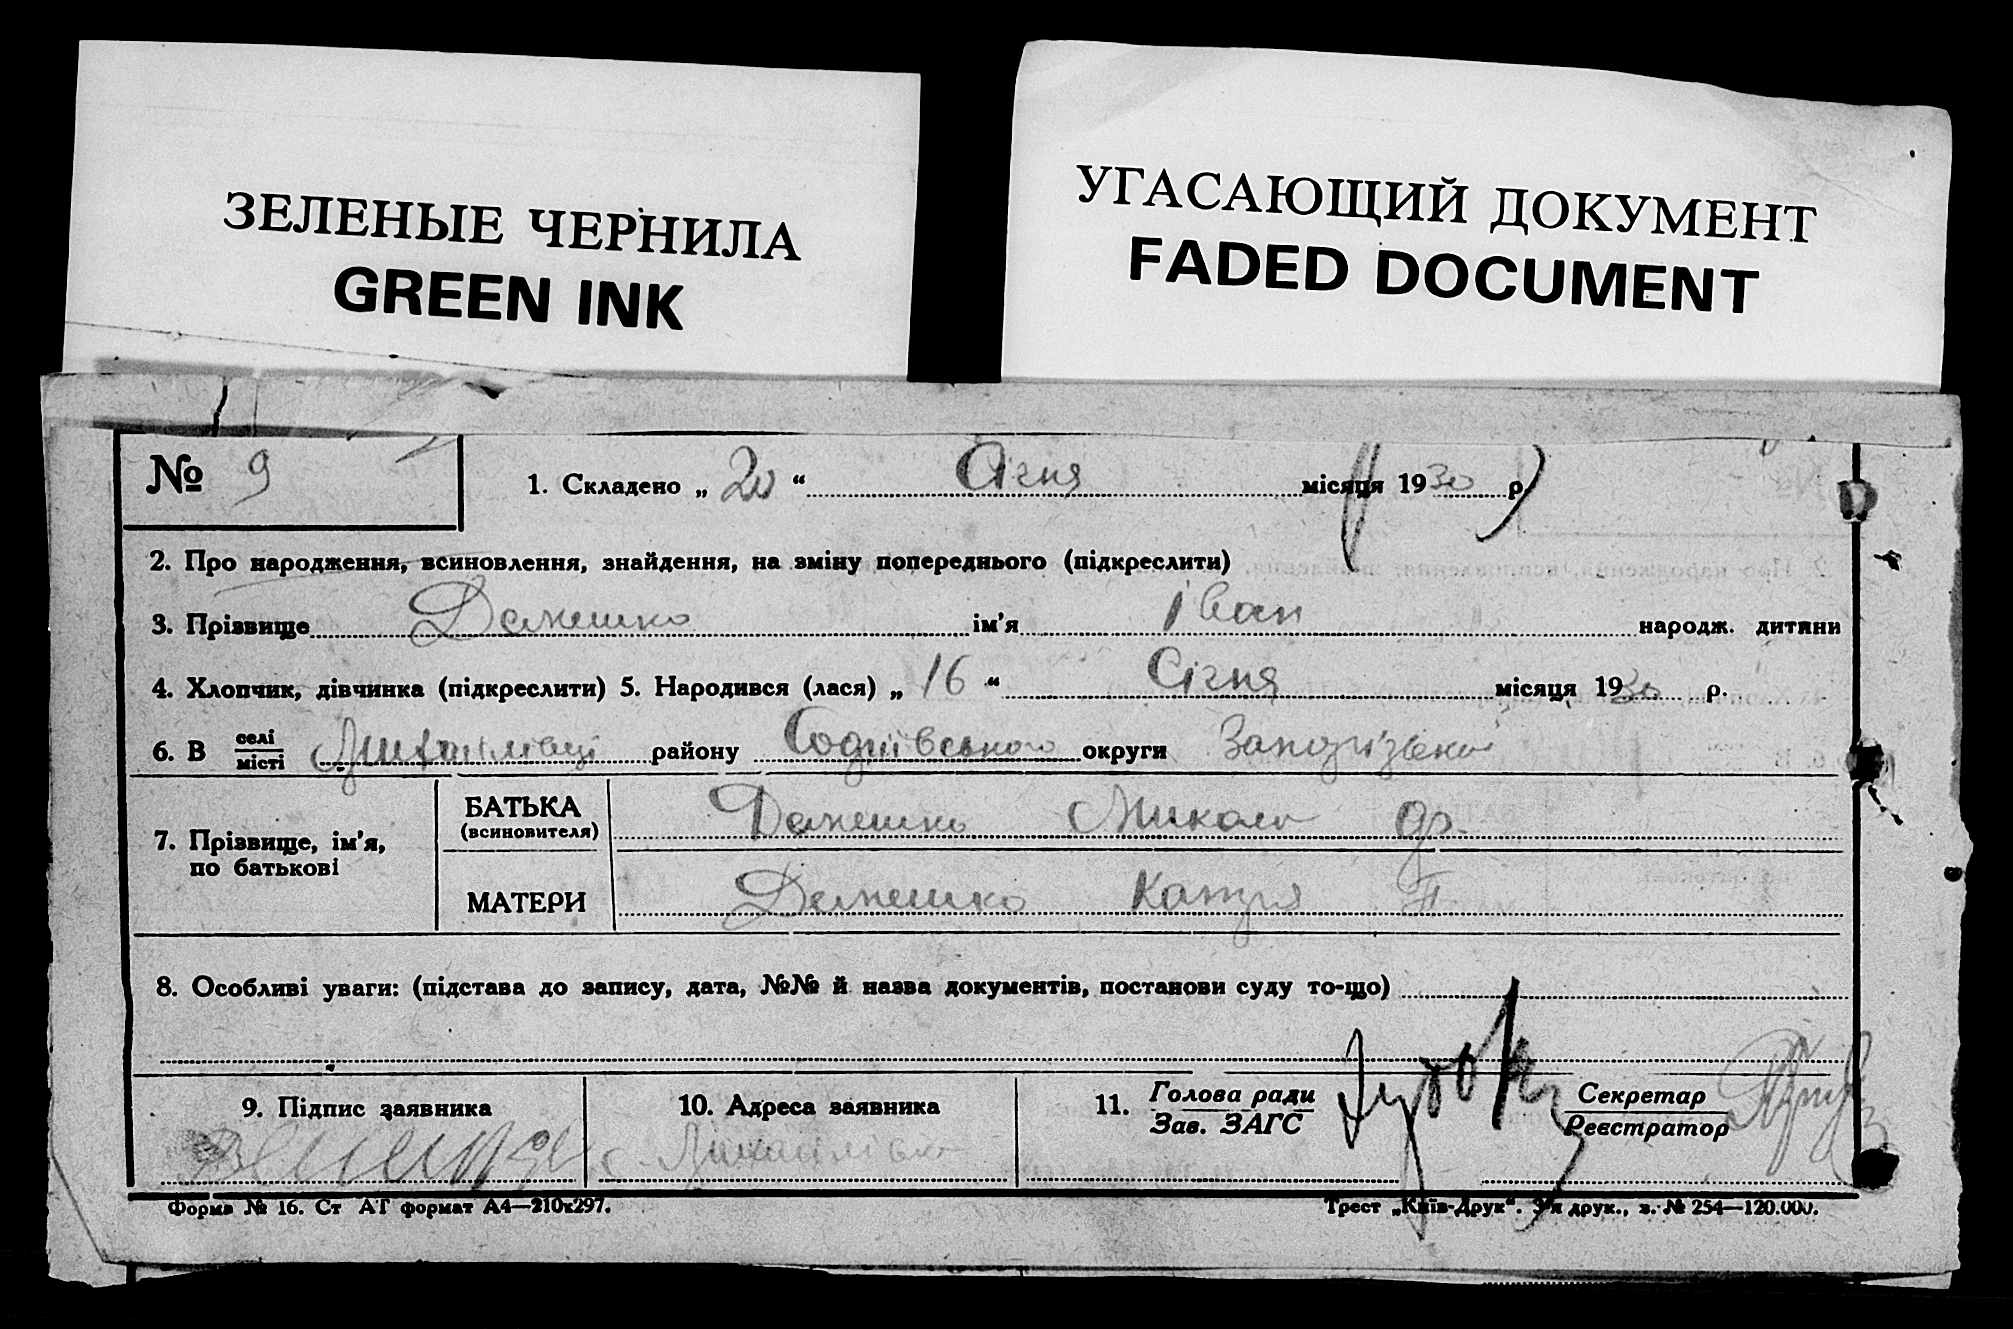 ЗЕЛЕНЫЕ ЧЕРНИЛА
GREEN INK
УГАСАЮЩИЙ ДОКУМЕНТ
FADED DOCUMENT
№ 9
1. Складено „ 20 “ Січня місяця 1930 р.
2. Про народження, всиновлення, знайдення, на зміну попереднього (підкреслити)
3. Прізвище ім'я Іван народж. дитини
4. Хлопчик, дівчинка (підкреслити) 5. Народився (лася) „ 16 “ Січня місяця 1930 р.
6. В селі
місті
Михайлівці району округи Запорізької
7. Прізвище, ім'я,
по батькові
БАТЬКА
(всиновителя)
Микола
МАТЕРИ
Катря П
8. Особливі уваги: (підстава до запису, дата, №№ й назва документів, постанови суду то-що)
9. Підпис заявника
10. Адреса заявника
с. Михайлівка
11. Голова ради
Зав. ЗАГС
Секретар
Реєстратор
Форма № 16. Ст АТ формат А4—210х297.
Трест „Київ-Друк“. 3-я друк., з. № 254—120.000.